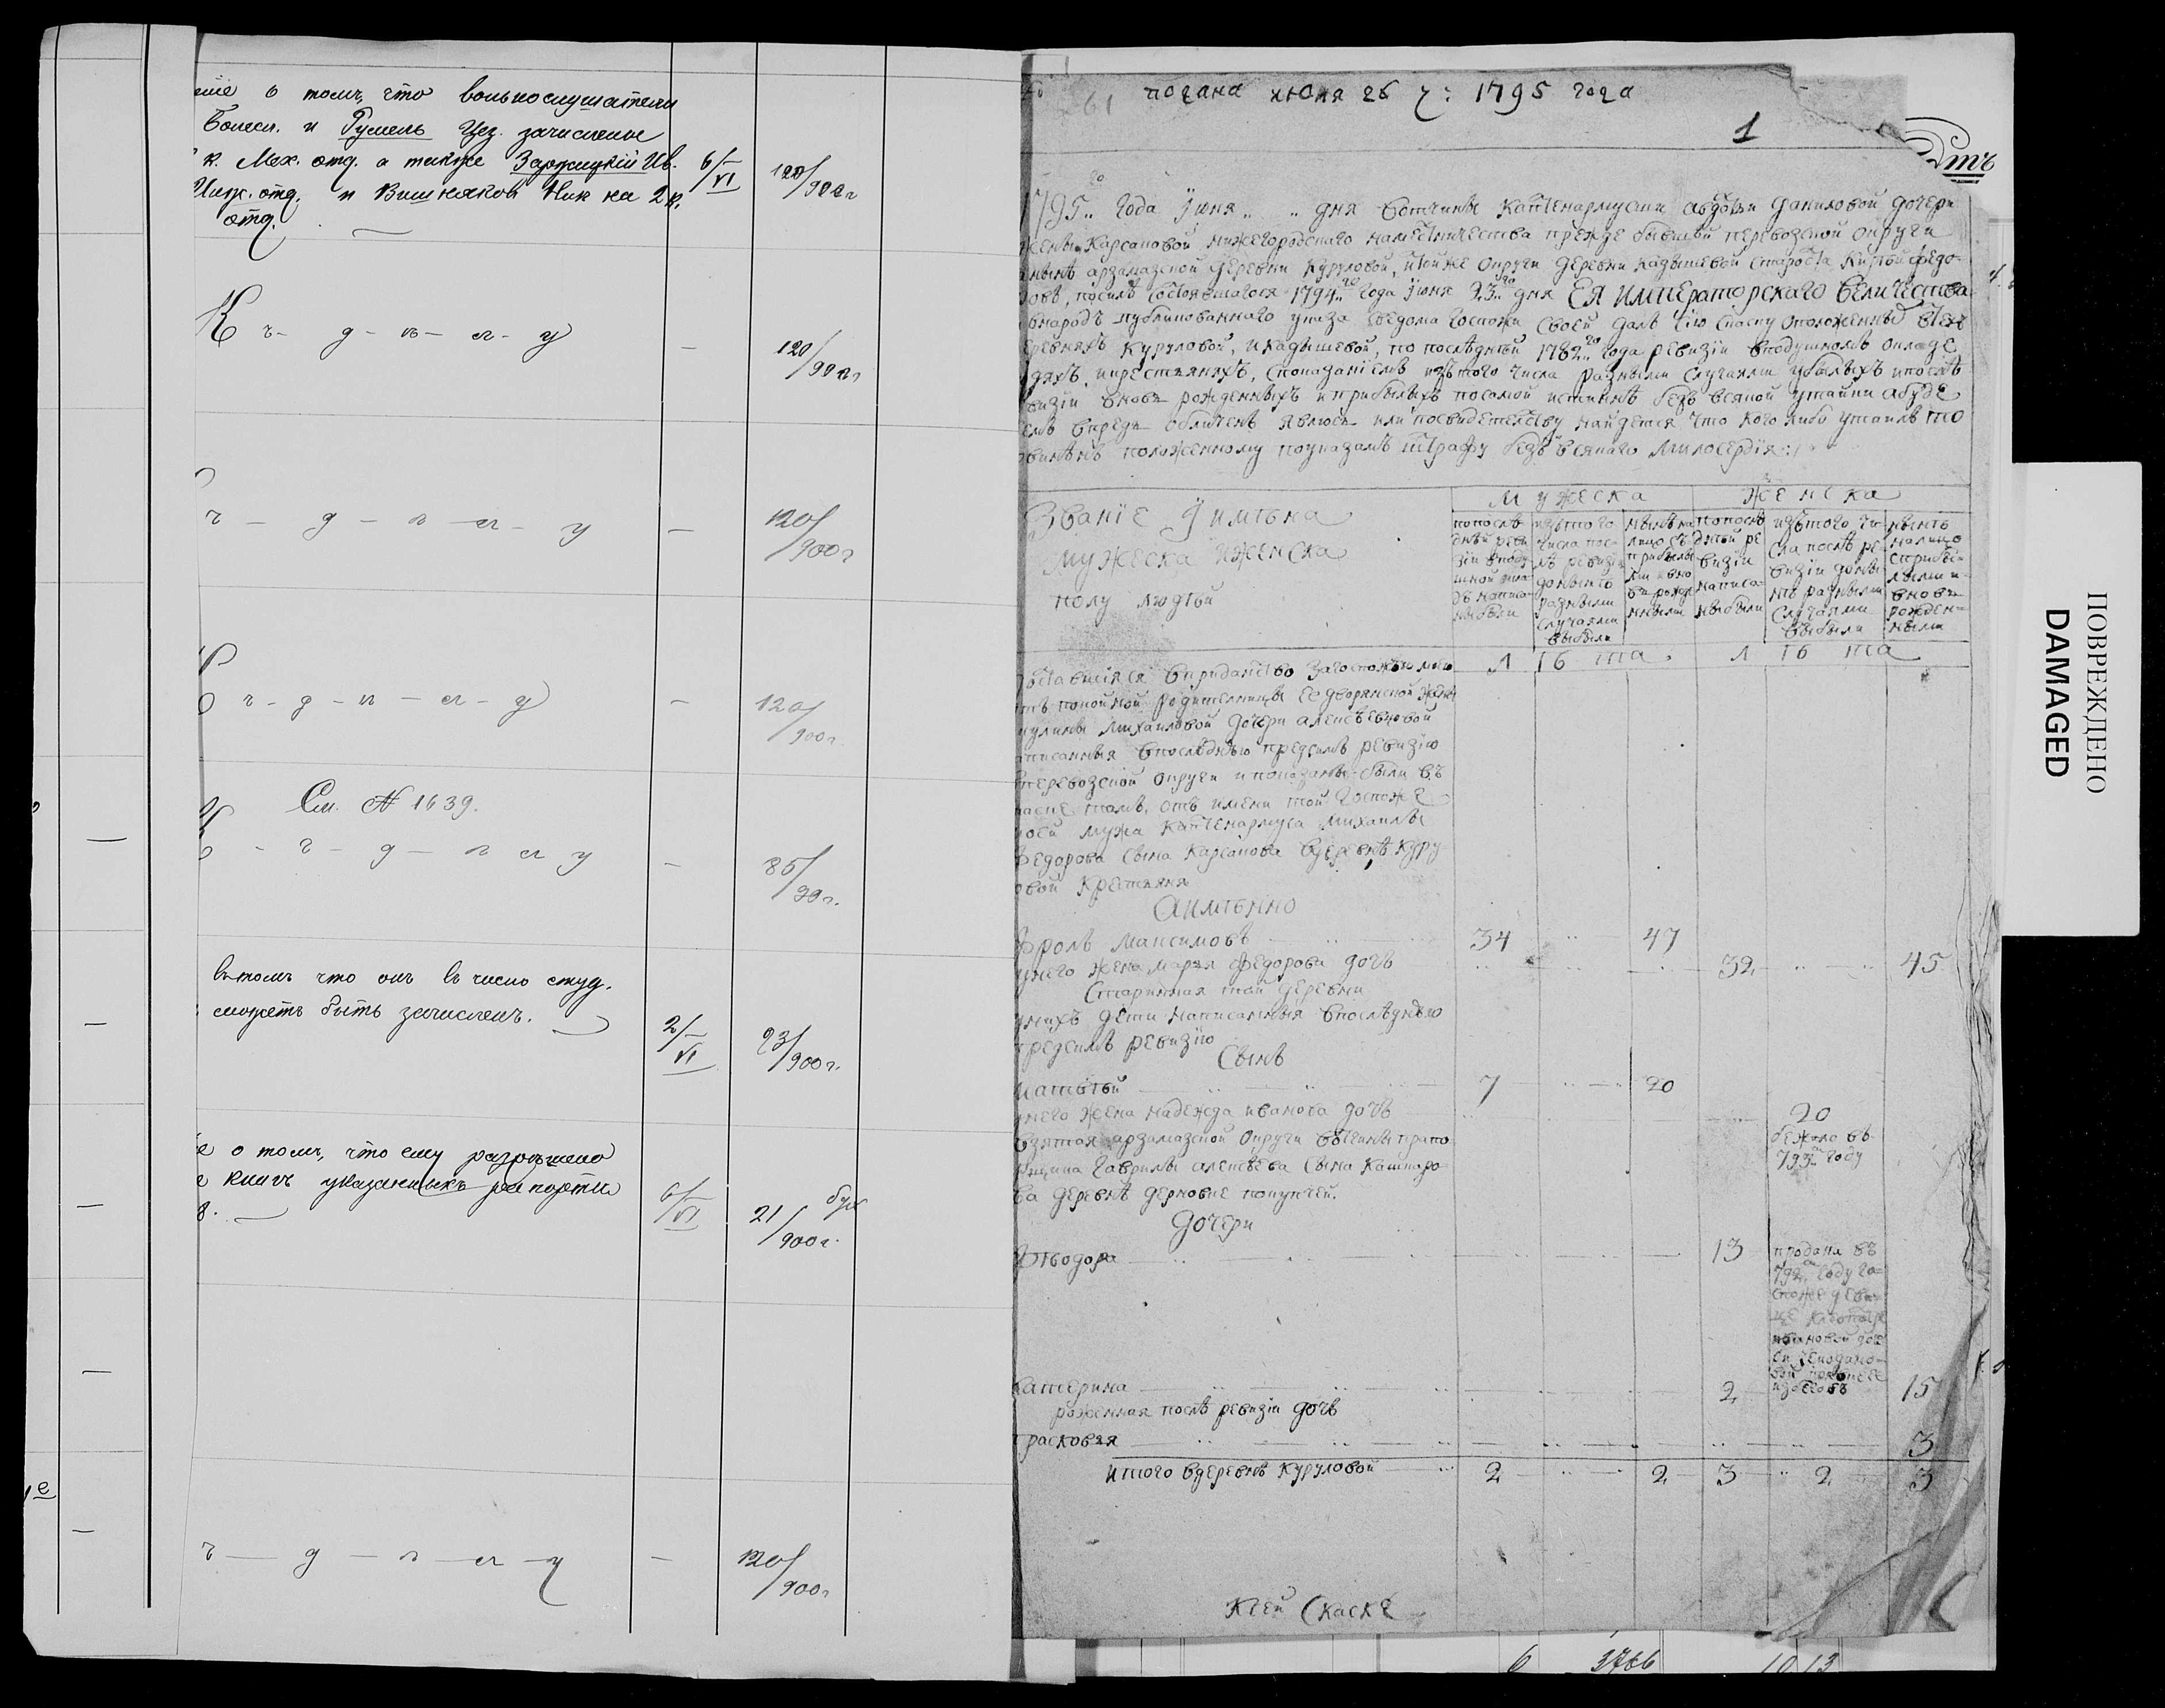 ніе о томъ, что вольнослушатели
Болесл. и Румель Цез. зачислены
к. Мех. отд. а также Заржицкій Ив. 6/VI 120/900 г
Инж. отд. и Вишняковъ Ник на 2 к.
отд.
К г - д - п - сл - у — 120/900 г
г - д - п - сл - у — 120/900 г
г - д - п - сл - у — 120/900 г.
См. № 1639.
г - д - п сл у — 85/99 г.
въ томъ что онъ въ число студ.
можетъ быть зачисленъ. 2/VI 23/900 г.
е о томъ, что ему разрѣшено
книгъ указанныхъ
6/VI 21/900 г.
г - д - п - сл - у — 120/900 г
1е
61 подана июня 26 ч: 1795 года
1
1795го года Июня .. .. дня вотчины каптенармуши авдотьи даниловой дочери
жены Карсаковой нижегородскаго наместничества прежде бывшей перевозской округи
а нынѣ арзамазской деревни Куруловой, итойже округи деревни кадышевой староста федо-
ровъ, посилѣ состоявшагося 1794го года Июня 23го дня ЕЯ ИМПЕРАТОРСКАГО ВЕЛИЧЕСТВА
внародъ публикованнаго указа сведома госпожи своей далъ сию скаску оположенныхъ втехъ
деревняхъ куруловой, икадышевой, по последнѣй 1782го года ревизіи вподушномъ окладе
людяхъ икрестьянахъ, споказаніемъ изтого числа разными случаями убылыхъ ипослѣ
ревизіи вновь рожденныхъ иприбылыхъ посамой истиннѣ безъ всякой утайки абуде
впредь обличенъ явлюсь или посвидетельству найдется что кого либо утаилъ то
повиненъ положенному поуказамъ штрафу безъ всякаго милосердія :/
Званіе Иимѣна
мужеска иженска
полу людѣй
Мужеска Женска
попослѣдней ревизіи вподушной окладъ написаны были
изтого числа послѣ ревизіи донынѣ разными случаями выбыли
нынѣ на лицо съ прибылыми и вновь рожденными
попослѣдней ревизіи написаны были
изтого числа послѣ ревизіи донынѣ разными случаями выбыли
нынѣ налицо сприбылыми и вновь рожденными
лѣта лѣта
доставшіяся вприданство загоспожею моею
отъ покойной родительницы ее дворянской жены
акулины Михаиловой дочери алексѣевцовой
написанныя впослѣднюю предсимъ ревизію
вперевозской округи и показаны были въ
скаске тамъ, отъ имени той госпоже
моей мужа Каптенармуса Михаилы
Федорова сына Карсакова вдеревнѣ куру
ловой крестьяня
Аимѣнно
Фролъ Максимовъ 34 .. 47
унего жена марья федорова дочь 32 .. 45
Старинная той деревни
унихъ дети написанныя впослѣднюю
предсимъ ревизію
Сынъ
Матвѣй 7 .. 20
унего жена надежда иванова дочь 20
взятая арзамазской округи вотчины
гаврилы алексѣева сына
бежала въ
793м году
ва деревнѣ покупкей.
Дочери
Фѣодора 13
продана въ
792м году го-
споже деви-
це
Катерина 2 15
роженная послѣ ревизіи дочь
Прасковья 3
Итого вдеревнѣ Куруловой 2 .. 2 3 2 3
Ксей скаске
6 3766 1013
ПОВРЕЖДЕНО
DAMAGED